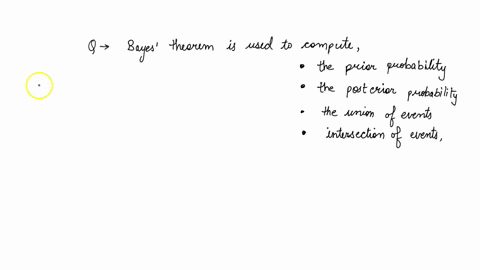 Q → Bayes' theorem is used to compute,
• the prior probability
• the posterior probability
• the union of events
• intersection of events,